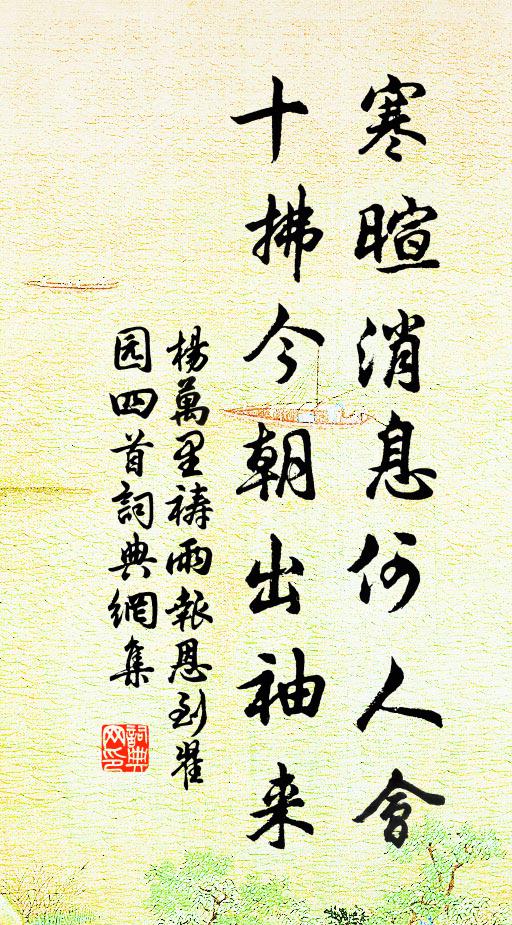 寒暄消息何人會
十拂今朝出袖来
楊萬里祷雨報恩到翟
园四首詞典網集
詞典网印